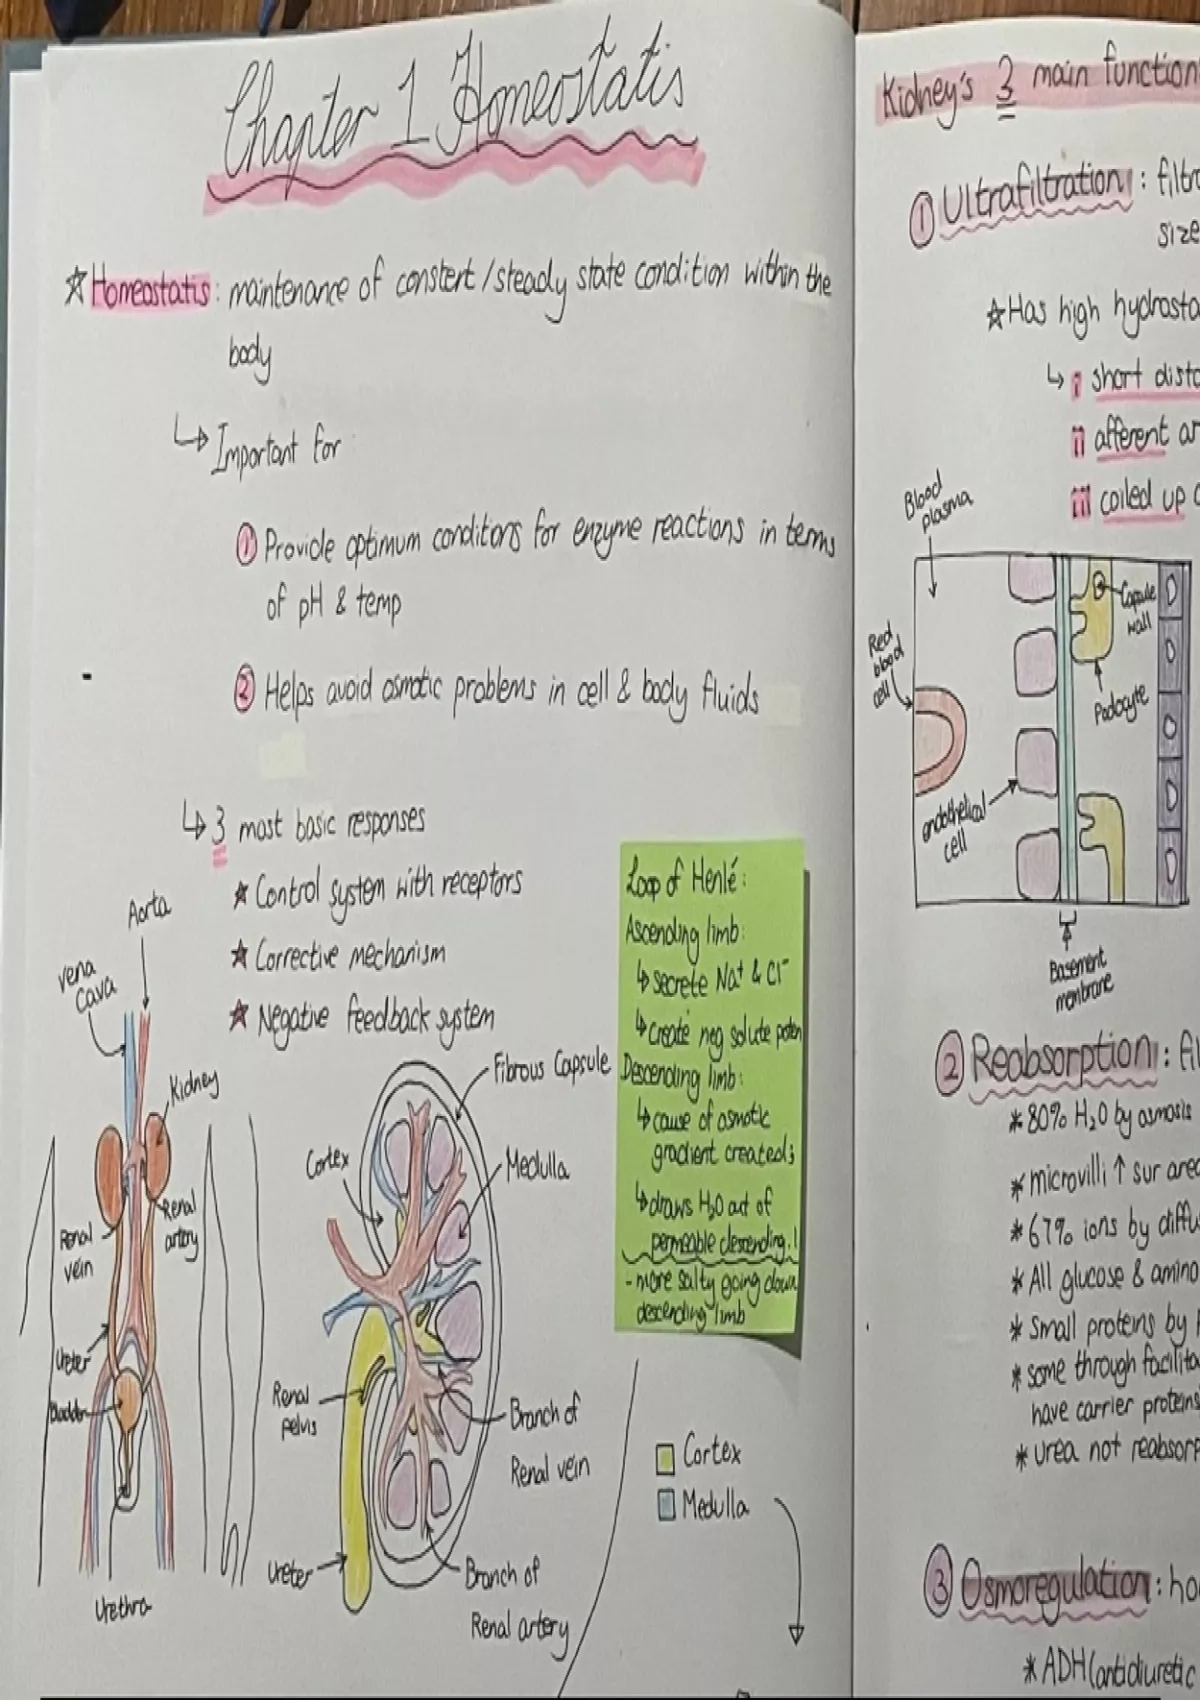 Chapter 1 Homeostatis
☆ Homeostatis: maintenance of constent/steady state condition within the
body
↳ Important for
① Provide optimum conditions for enzyme reactions in terms
of pH & temp
② Helps avoid osmotic problems in cell & body fluids
↳ 3 most basic responses
★ Control system with receptors
★ Corrective mechanism
★ Negative feedback system
Aorta
vena
cava
Kidney
Renal
vein
Renal
artery
Ureter
Bladder
Urethra
Fibrous Capsule
Cortex
Medulla
Renal
pelvis
Branch of
Renal vein
Ureter
Branch of
Renal artery
Loop of Henlé:
Ascending limb:
↳ secrete Na⁺ & Cl⁻
↳ create neg solute poten
Descending limb:
↳ cause of osmotic
gradient created;
↳ draws H₂O out of
permeable descending.!
- more salty going down
descending limb
Cortex
Medulla
Kidney's 3 main function
① Ultrafiltration: filtra
size
☆ Has high hydrosta
↳ i short dista
ii afferent ar
iii coiled up
Blood
plasma
Red
blood
cell
Capsule
wall
Podocyte
endothelical
cell
Basement
membrane
② Reabsorption:
* 80% H₂O by osmosis
* microvilli ↑ sur area
* 67% ions by diffu
* All glucose & amino
* Small proteins by
* some through facilita
have carrier proteins
* Urea not reabsorp
③ Osmoregulation: ho
* ADH (antidiuretic